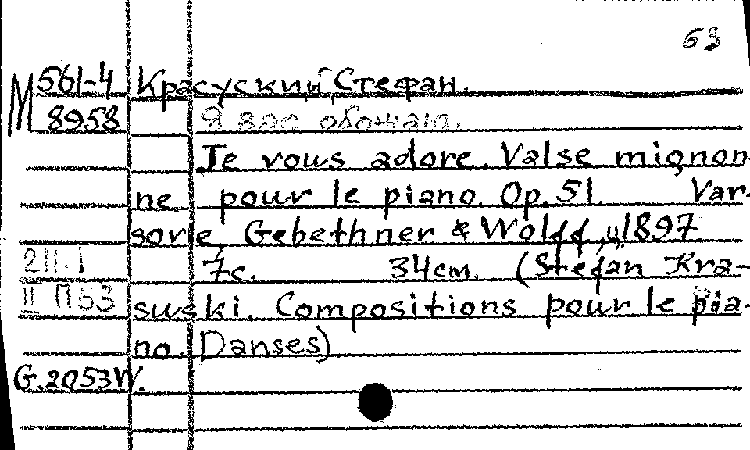 53
М 561-4 Красуский, Стефан.
8958 Я вас обожаю.
Je vous adore. Valse mignon-
ne pour le piano. Op. 51. Var-
sovie, Gebethner & Wolff, 1897
211.1 7с. 34см. (Stefan Kra-
II П53 suski. Compositions pour le pia-
no. Danses)
G.2053W.